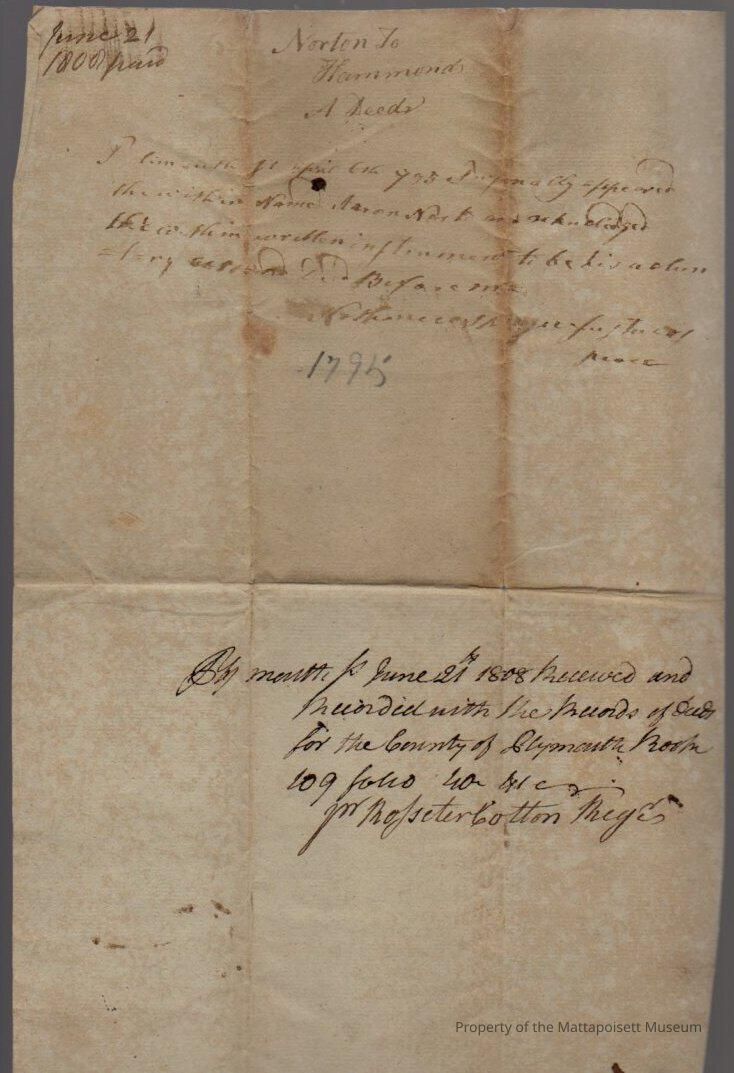 June 21
1808 paid
Norton To
Hammond
A Deed
Plimouth ss april 6th 795 Personally appeared
the within Name Aaron Nort and acknoledged
the within written instrument to be his a
Before me
Justice of
peace
1795
Plymouth ss June 21st 1808 Received and
Recorded with the Records of Deeds
for the County of Plymouth Book
109 folio 40
pr Rosseter Cotton Regr
Property of the Mattapoisett Museum